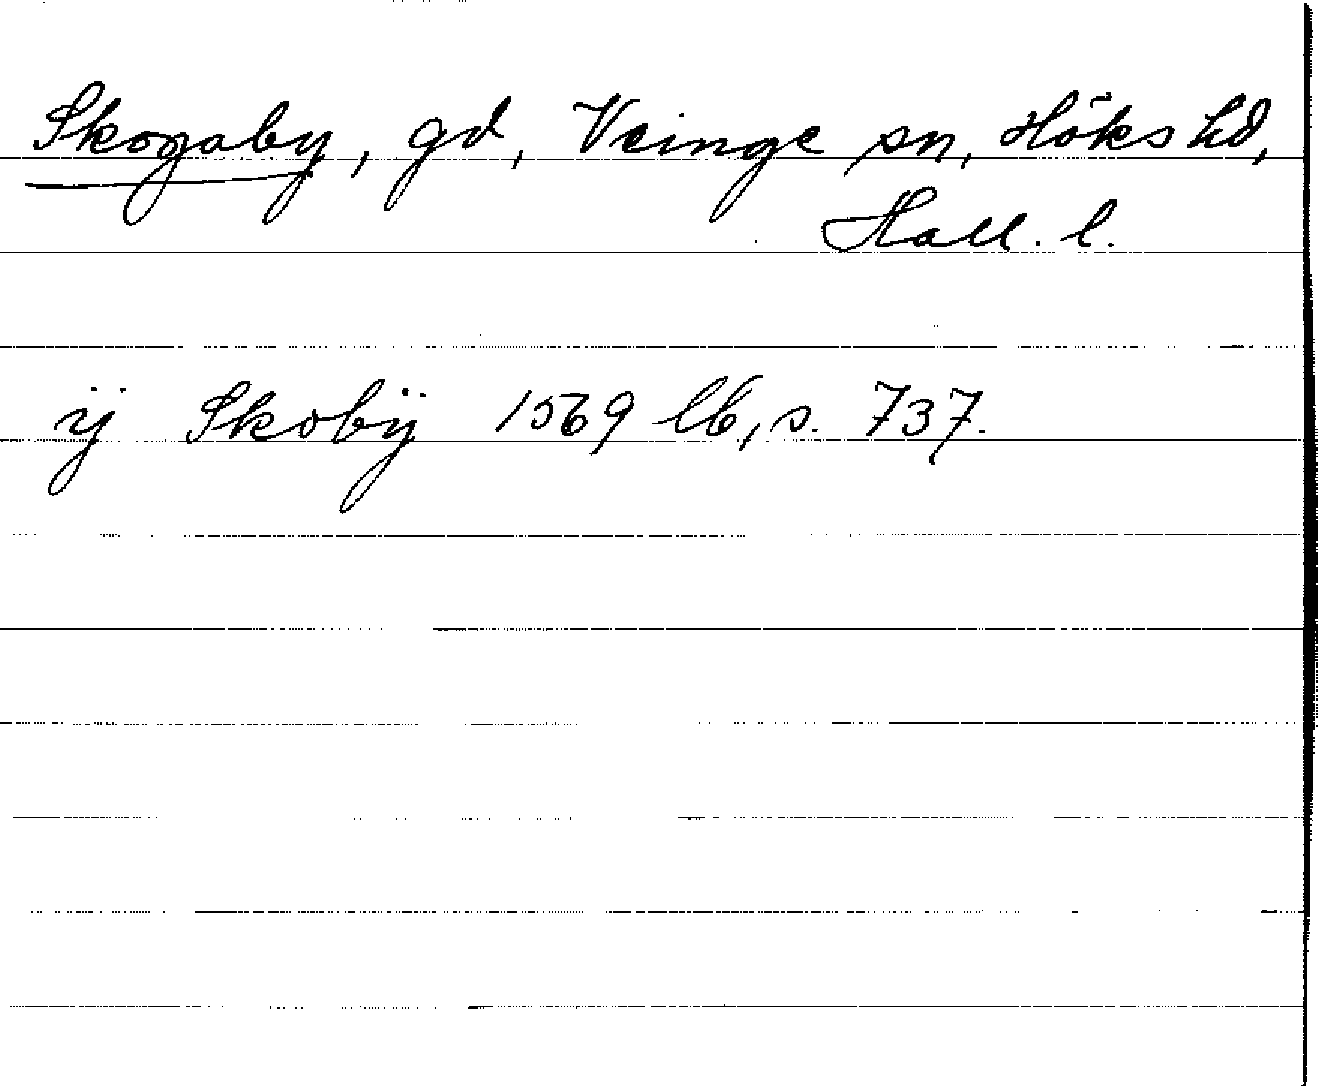 Skogaby, gd, Veinge sn, Höks hd,
Hall. l.
ÿ Skobÿ 1569 lb, s. 737.